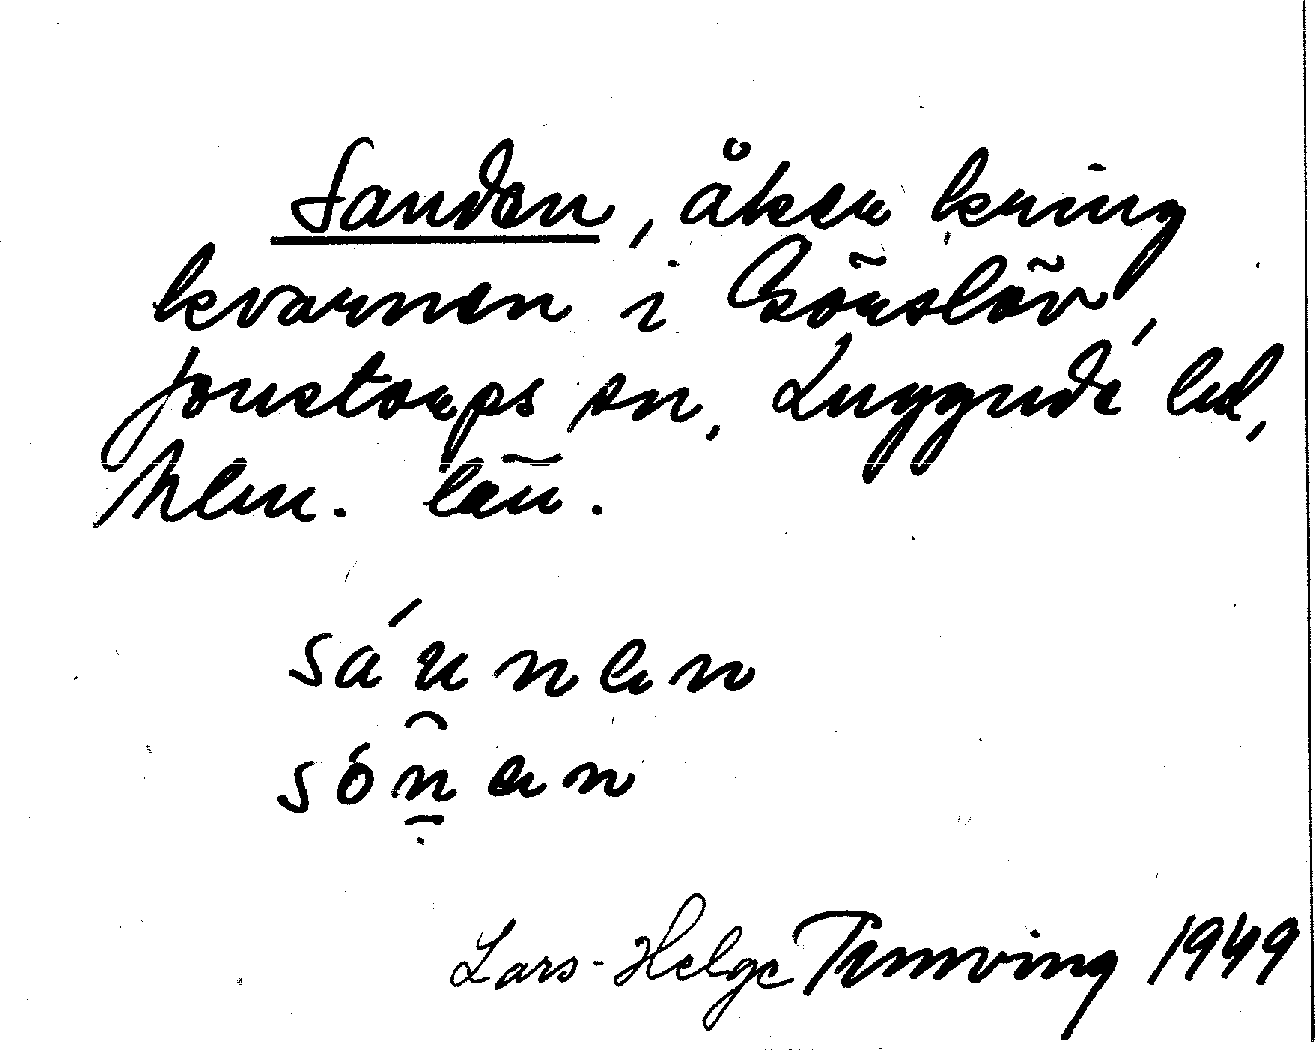 Sanden, åker kring
kvarnen i Görslöv,
Jonstorps sn, Luggude hd,
Mlm. län.
sáunen
sónen
Lars-Helge Temving 1949